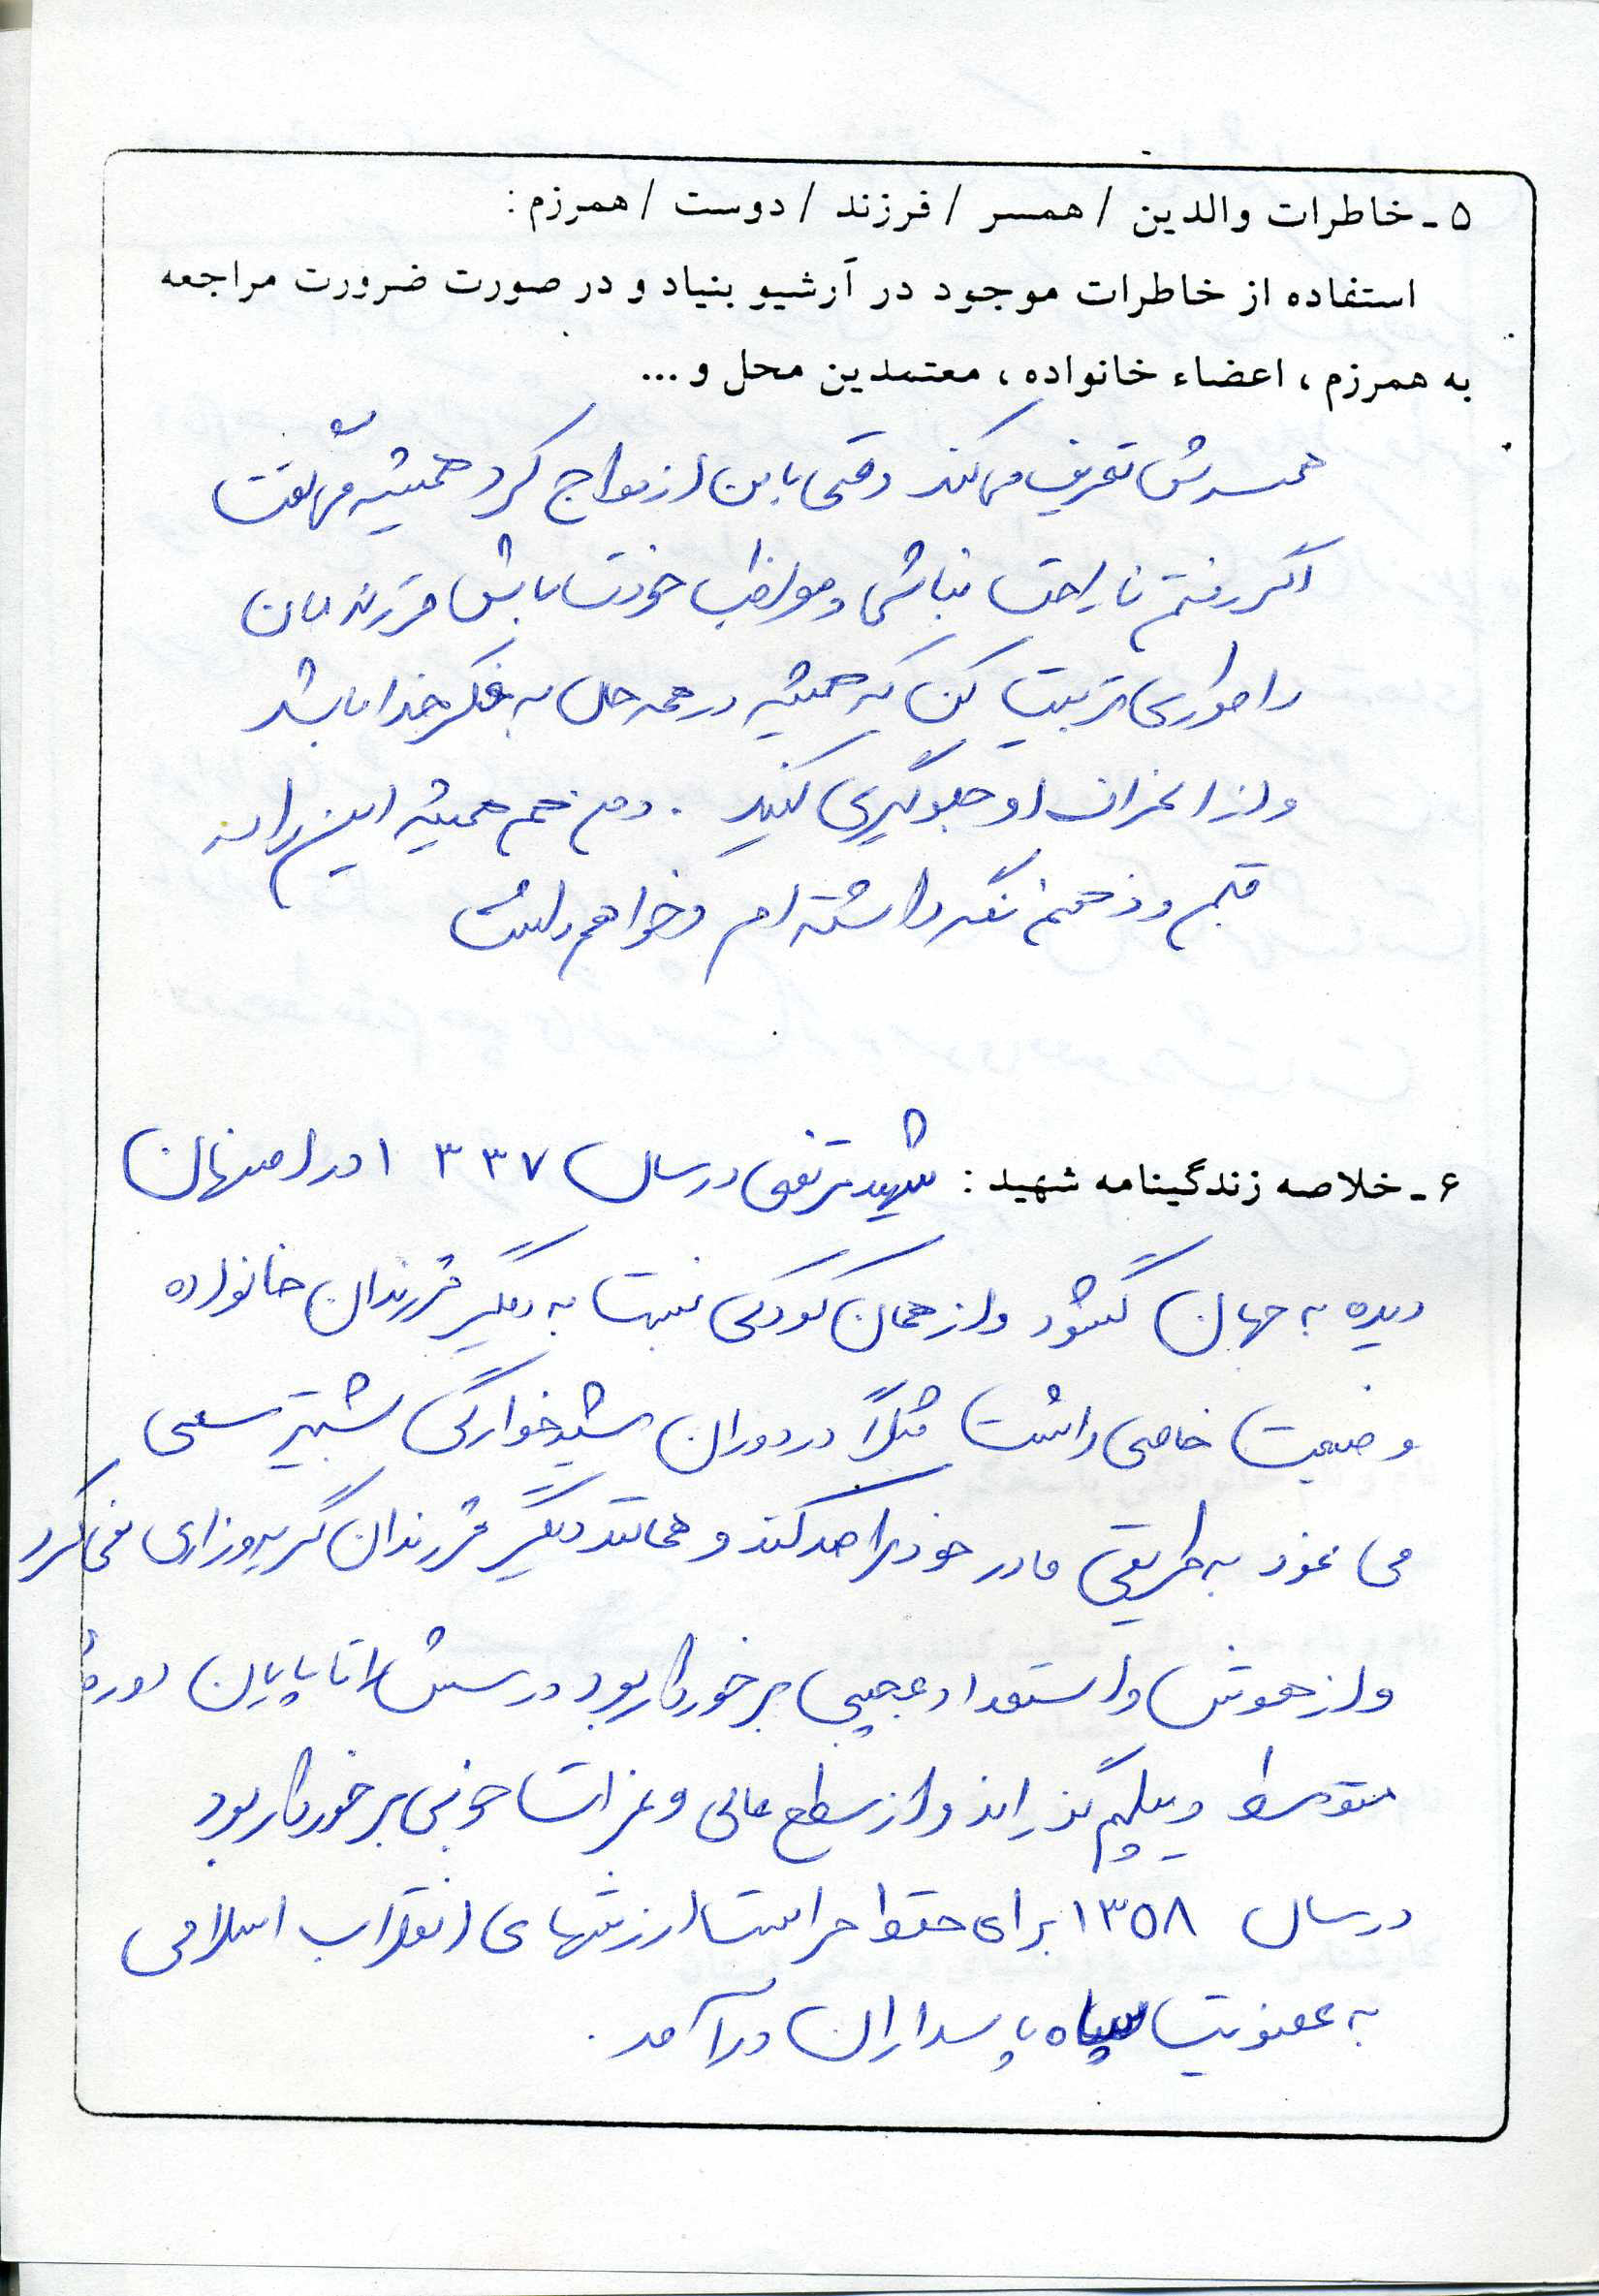 ۵ - خاطرات والدین / همسر / فرزند / دوست / همرزم :
استفاده از خاطرات موجود در آرشیو بنیاد و در صورت ضرورت مراجعه
به همرزم ، اعضاء خانواده ، معتمدین محل و ...
همسرش تعریف می‌کند وقتی با من ازدواج کرد همیشه می‌گفت
اگر رفتم ناراحت نباشی و مواظب خودت باش فرزندمان
را طوری تربیت کن که همیشه در همه حال به فکر خدا باشد
و از انحراف او جلوگیری کنید . و من هم همیشه این را به
قلبم و ذهنم نگه داشته‌ام و خواهم داشت
۶ - خلاصه زندگینامه شهید : شهید در سال ۱۳۳۷ در اصفهان
دیده به جهان گشود و از همان کودکی نسبت به دیگر فرزندان خانواده
وضعیت خاصی داشت مثلاً در دوران شیرخوارگی بیشتر سعی
می نمود به طریقی مادر خود را صدا کند و همانند دیگر فرزندان گریه و زاری نمی کرد
و از هوش و استعداد عجیبی برخوردار بود درسش را تا پایان دوره
متوسطه دیپلم گذراند و از سطح عالی و نمرات خوبی برخوردار بود
در سال ۱۳۵۸ برای حفظ و حراست ارزشهای انقلاب اسلامی
به عضویت سپاه پاسداران درآمد .